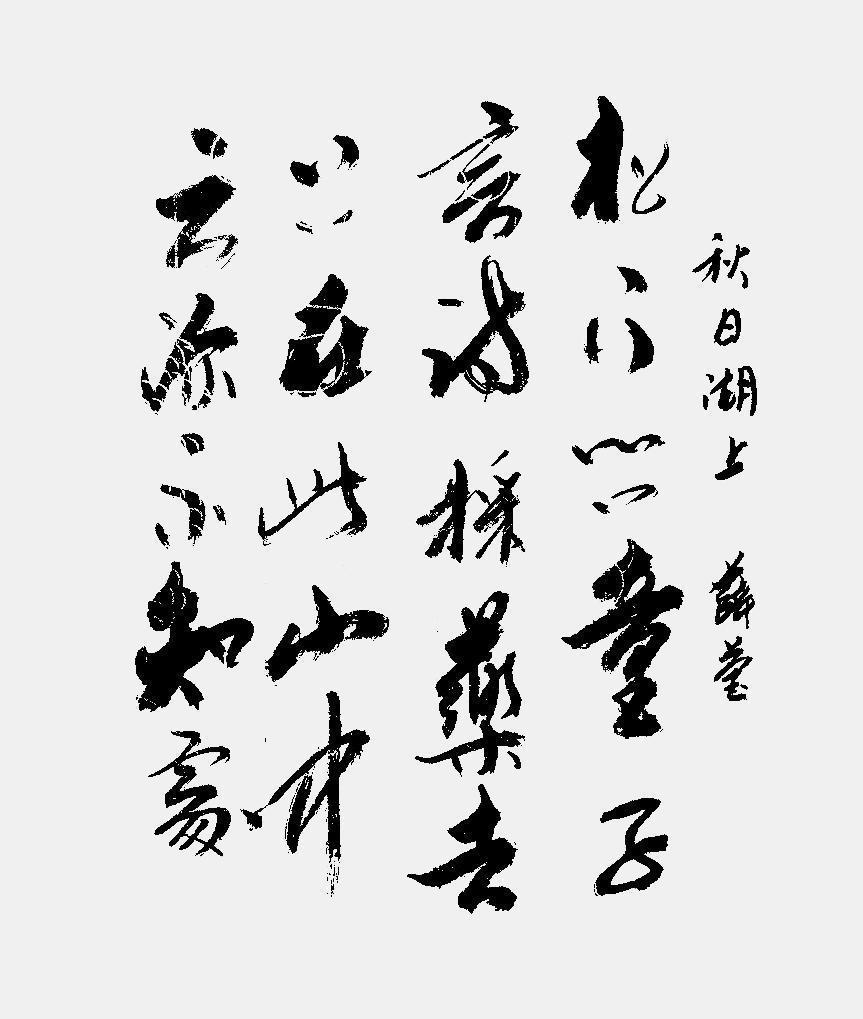 秋日湖上 薛莹
松下問童子
言師採藥去
只在此山中
云深不知處